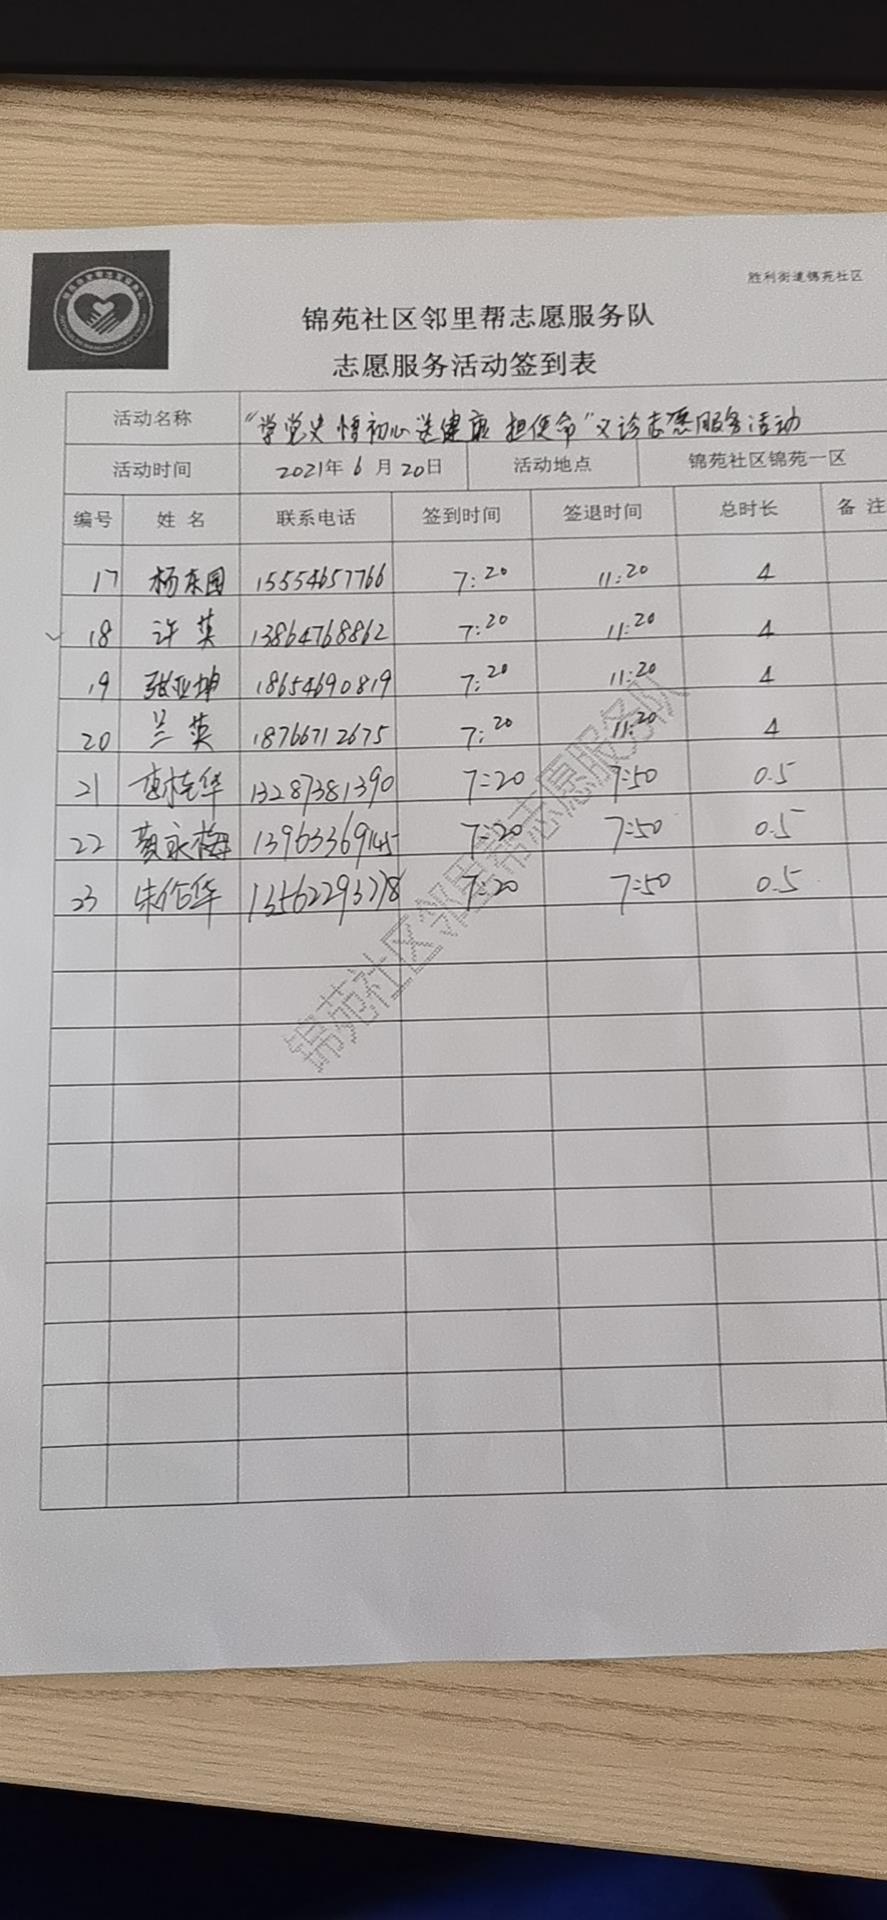 胜利街道锦苑社区
锦苑社区邻里帮志愿服务队
志愿服务活动签到表
活动名称 "学党史 悟初心 送健康 担使命"义诊志愿服务活动
活动时间 2021年6月20日 活动地点 锦苑社区锦苑一区
编号 姓名 联系电话 签到时间 签退时间 总时长 备注
17 杨东园 15554657766 7:20 11:20 4
18 许英 13864768862 7:20 11:20 4
19 张亚坤 18654690819 7:20 11:20 4
20 兰英 18766712675 7:20 11:20 4
21 13287381390 7:20 7:50 0.5
22 永梅 13963369145 7:20 7:50 0.5
23 朱 华 7:20 7:50 0.5
锦苑社区邻里帮志愿服务队